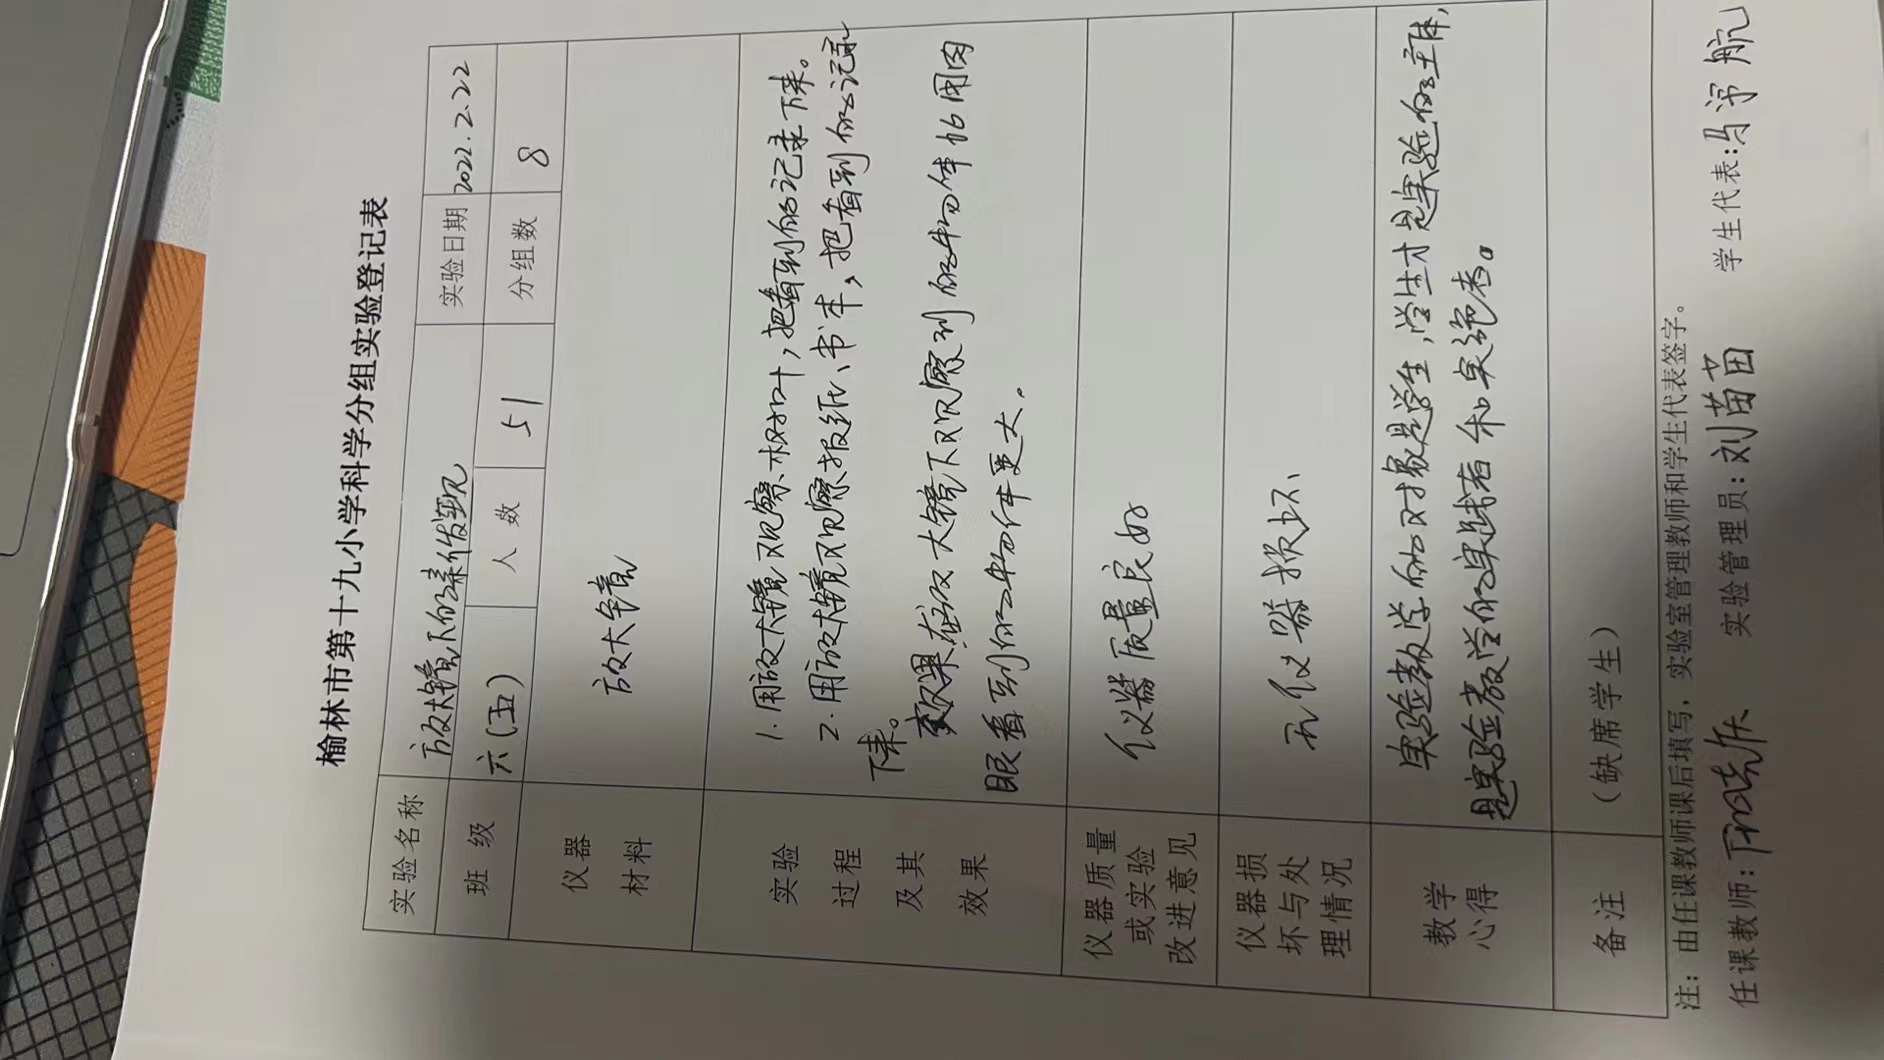 榆林市第十九小学科学分组实验登记表
实验名称 放大镜下的新发现 实验日期 2022.2.22
班级 六(五) 人数 51 分组数 8
仪器
材料
放大镜
实验
过程
及其
效果
1.用放大镜观察树叶,把看到的记录下来。
2.用放大镜观察报纸、书本,把看到的记录
下来。
效果:在放大镜下观察到的物体比用肉
眼看到的物体更大。
仪器质量
或实验
改进意见
仪器质量良好
仪器损
坏与处
理情况
无仪器损坏
教学
心得
实验教学的对象是学生,学生才是实验的主体,
是实验教学的实践者和实施者。
备注 (缺席学生)
注:由任课教师课后填写,实验室管理教师和学生代表签字。
任课教师: 实验管理员:刘苗苗 学生代表:马 航